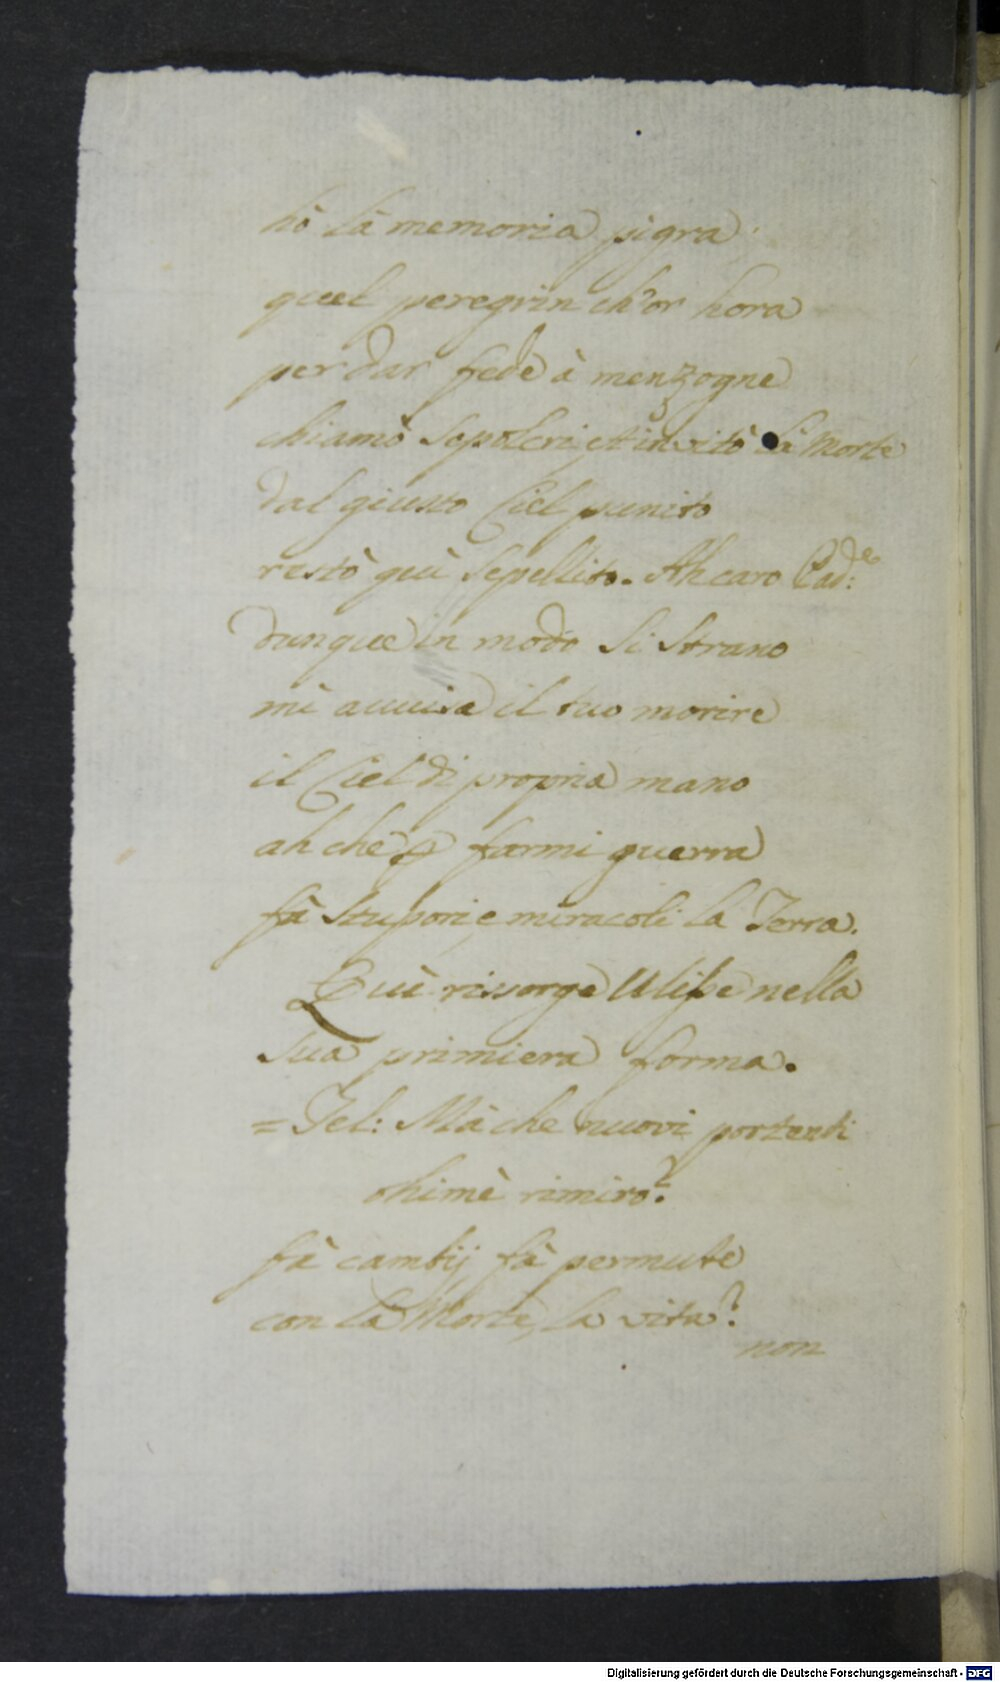 hò la memoria pigra
quel peregrin ch'or hora
per dar fede à menzogne
chiamò Sepolcri, et invitò la Morte
dal giusto Ciel punito
restò quì Sepellito. Ah caro Pad:e
dunque in modo Si Strano
mi auuisa il tuo morire
il Ciel di propria mano
ah che farmi guerra
fà Stupori, e miracoli la Terra.
Quì rissorge Ulisse nella
sua primiera forma.
= Tel: Mà che nuovi portenti
ohimè rimiro?
fà cambij, fà permute
con la Morte, la vita?
non
Digitalisierung gefördert durch die Deutsche Forschungsgemeinschaft - DFG